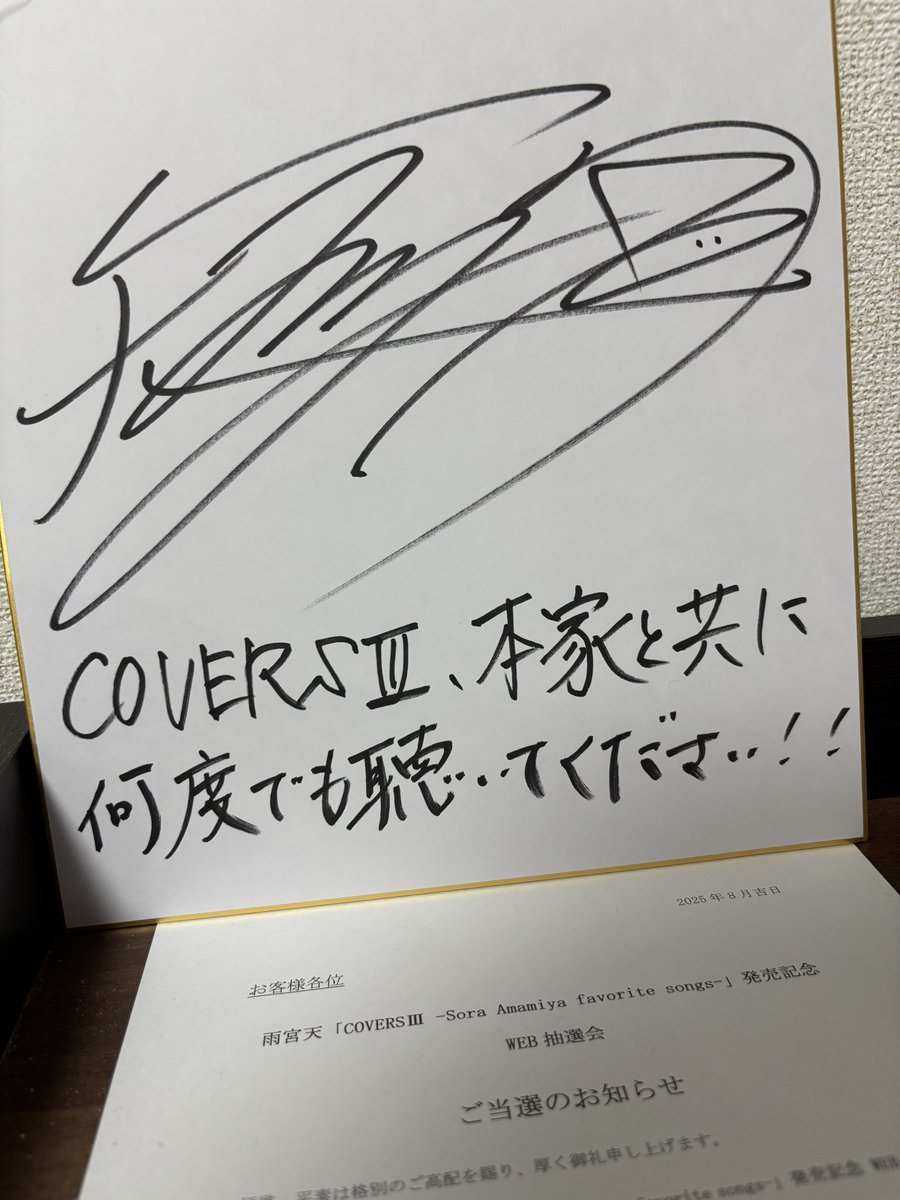 COVERSⅢ、本家と共に
何度でも聴いてください!!
2025年8月吉日
お客様各位
雨宮天「COVERSⅢ -Sora Amamiya favorite songs-」発売記念
WEB抽選会
ご当選のお知らせ
平素は格別のご高配を賜り、厚く御礼申し上げます。
favorite songs-」発売記念 WEB